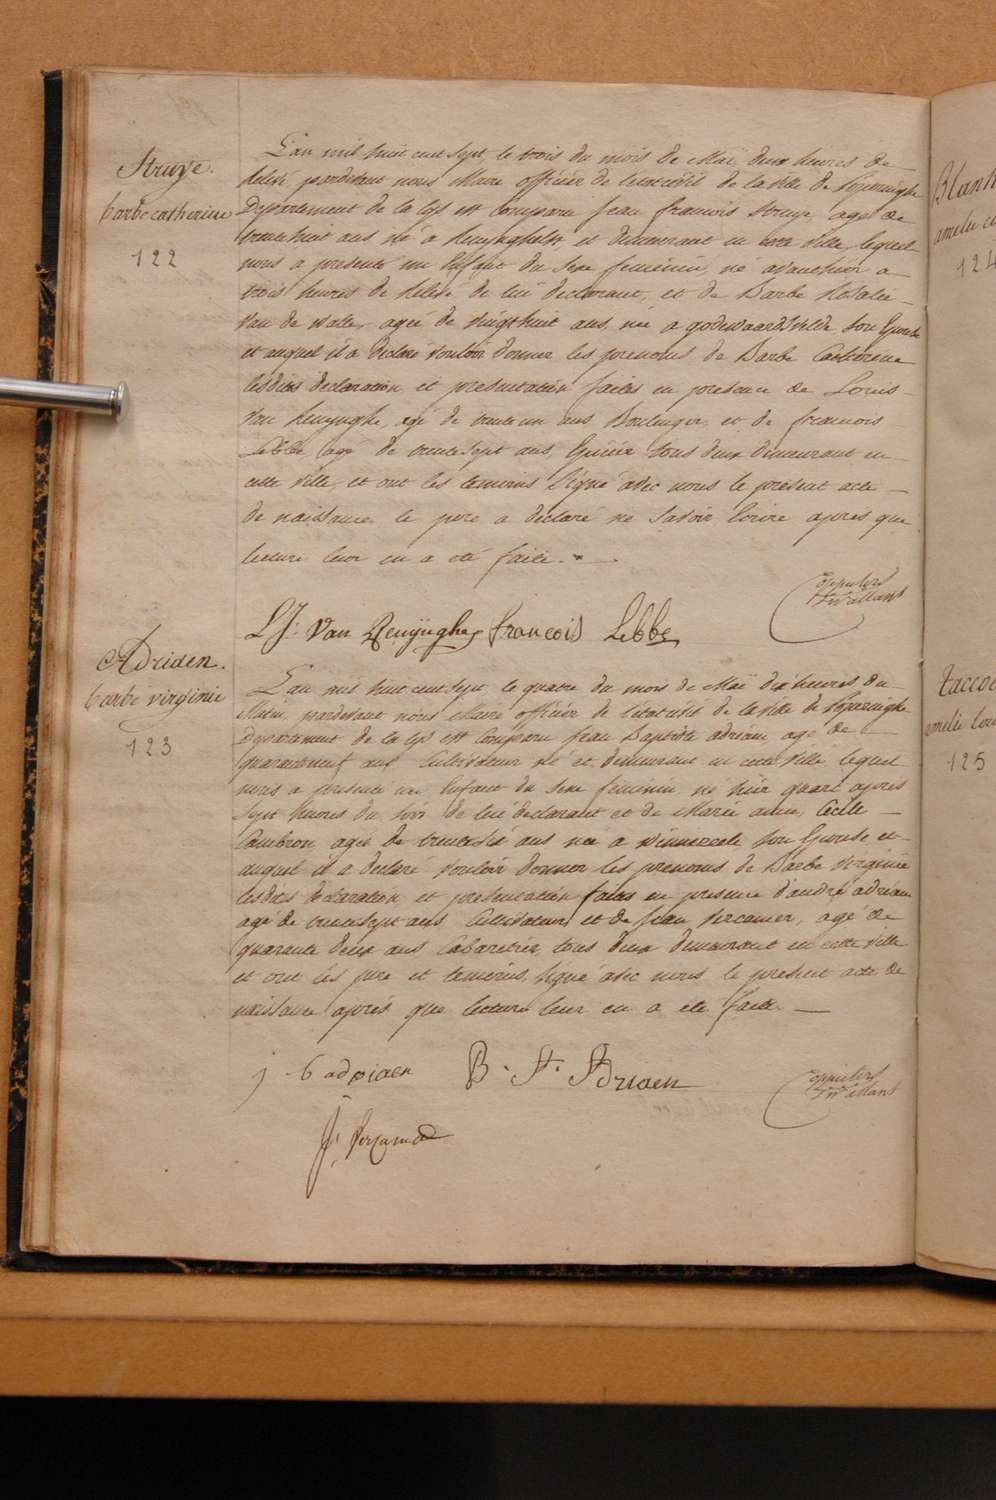 Struye.
barbe catherine
122
L'an mil huit cent sept, le trois du mois de Maï deux heures de
relevé, pardevant nous Maire officier de l'etat civil de la ville de Poperinghe
Departement de la Lys est comparu Jean francois Struye, agé de
trente huit ans né a Reninghelst et demeurant en cette ville, lequel
nous a presenté un Enfant du sexe feminin, né avanthier a
trois heures de relevé de lui declarant, et de Barbe Rosalie
Van de walle, agée de vingthuit ans, née a godewaersvelde son Epouse
et auquel il a declaré vouloir donner les prenoms de Barbe Catherine
lesdites declaration et presentation faites en presence de Louis
Van Renynghe, agé de trente un ans Boulanger, et de francois
Lebbe agé de trente sept ans, Epicier tous deux demeurant en
cette ville, et ont les temoins signé avec nous le present acte
de naissance le pere a declaré ne savoir Ecrire apres que
lecture leur en a eté faite.
L J: Van Renÿnghe francois Lebbe
Adriaen.
barbe virginie
123
L'an mil huit cent sept, le quatre du mois de Maï dix heures du
Matin, pardevant nous Maire officier de l'etat civil de la ville de Poperinghe
Departement de la Lys est comparu Jean Baptiste adriaen agé de
quarante neuf ans Cultivateur né et demeurant en cette ville lequel
nous a presenté un Enfant du sexe feminin né hier quart apres
sept heures du soir de lui declarant et de Marie anne Cecile
Cambron agée de trente six ans née a winnezeele son Epouse et
auquel il a declaré vouloir donner les prenoms de Barbe virginie
lesdites declaration et presentation faites en presence d'andré adriaen
agé de trente sept ans Cultivateur et de Jean vercamer, agé de
quarante deux ans Cabaretier, tous deux demeurant en cette ville
et ont les pere et temoins, signé avec nous le present acte de
naissance après que lecture leur en a eté faite.
j b adriaen B. St. Adriaen
124
125